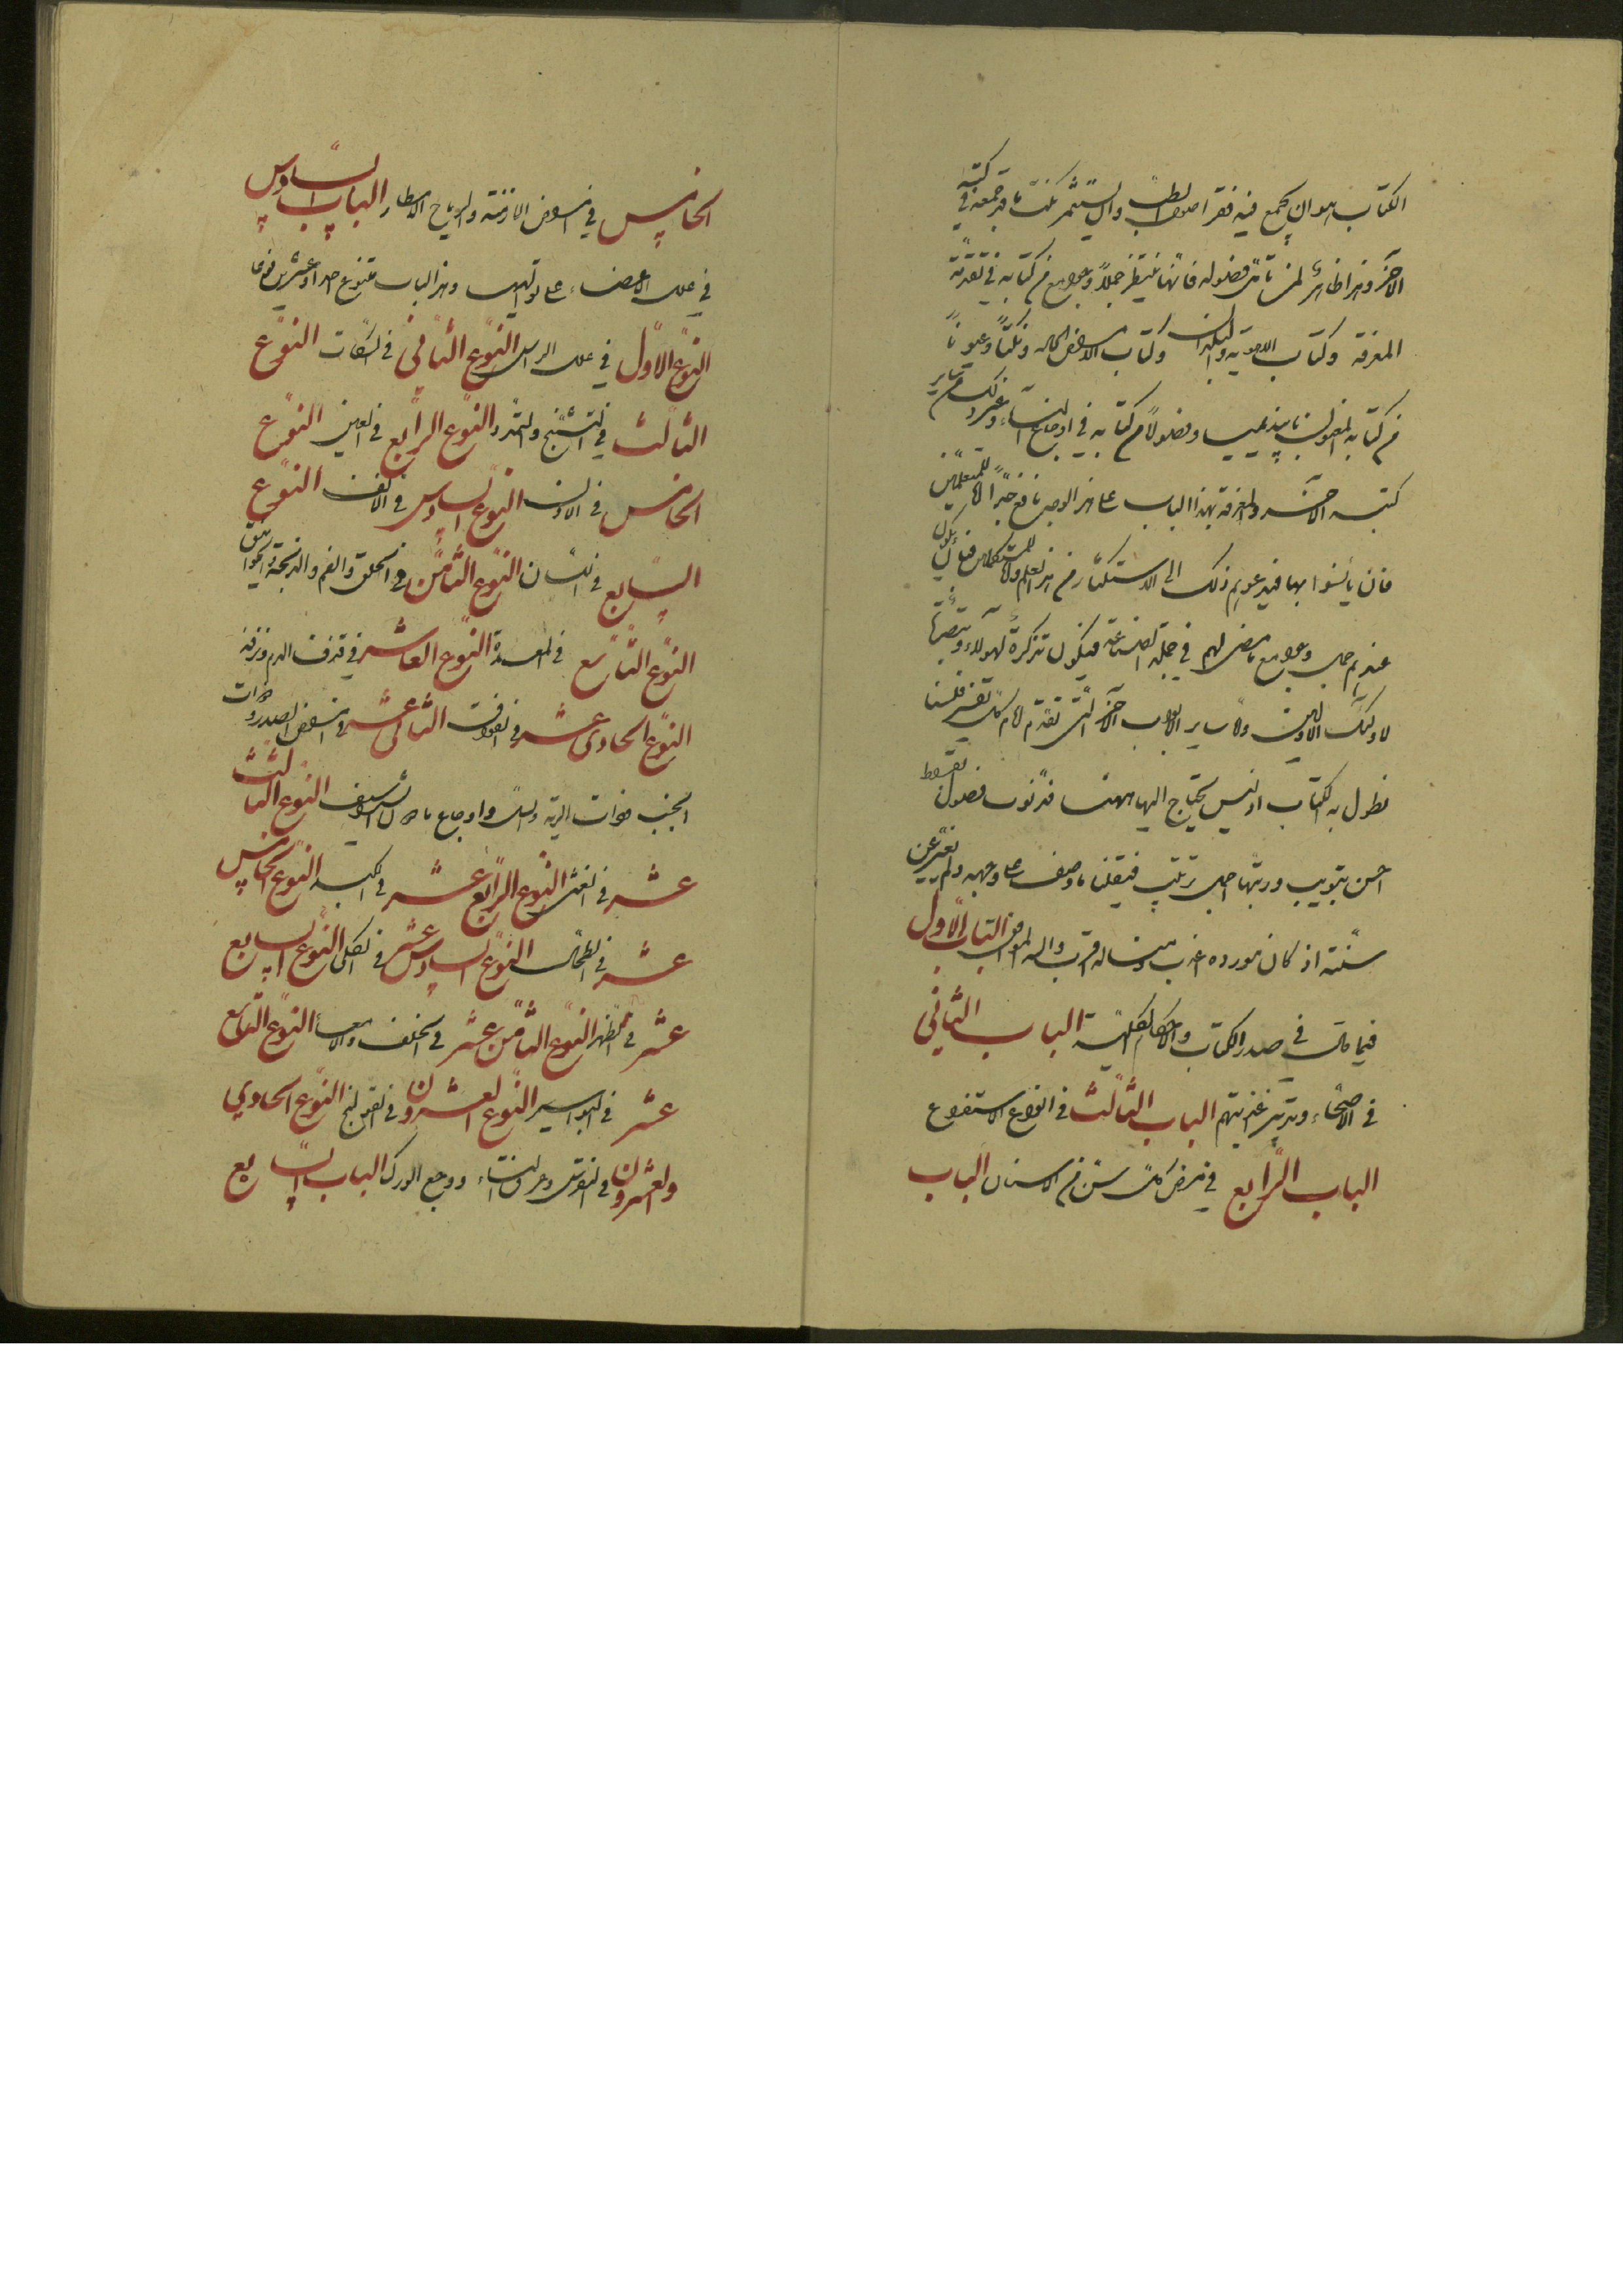 الكتاب هو ان يجمع فيه فقر اصول الطب وان يستثمر نكت ما قد جمعه في كتبه
الآخر وهذا ظاهر لمن تأمل فصوله فانها تنتظم جملا وجوامع من كتابه في تقدمة
المعرفة وكتاب الاهوية والبلدان وكتاب الامراض الحادة ونكتا وعيونا
من كتابه المعنون بابيذيميا وفصولا من كتابه في اوجاع النساء وغير ذلك من ساير
كتبه الآخر والمعرفة بهذا الباب على هذا الوجه نافع جدا اما للمتعلمين
فان يأنسوا بها فيدعوهم ذلك الى الاستكثار من هذا العلم واما للمستكملين فبأن يكون
عندهم جمل وجوامع ما مضى لهم في جملة الصناعة فيكون تذكرة لهولاء وتبصرة
لاولئك الاولين واما ساير الابواب الآخر التي تقدم امام كل تفسير فلسنا
نطول به الكتاب اذ ليس يحتاج اليها ههنا فصول بقراط
احسن تبويب ورتبها اجمل ترتيب فنقلنا ما وصف على وجهه ولم نغير عن
سننه اذ كان مورده اعذب ومناله اقرب والله الموفق الباب الاول
فيما قال في صدر الكتاب والاحكام الكلية الباب الثاني
في الاصحاء وتدبير اغذيتهم الباب الثالث في انواع الاستفراغ
الباب الرابع في مرض كل سن من الاسنان الباب
الخامس في امراض الازمنة والرياح والامطار الباب السادس
في علل الاعضاء على تواليها وهذا الباب يتنوع احدا وعشرين نوعا
النوع الاول في علل الراس النوع الثاني في السكتات النوع
الثالث في التشنج والتمدد النوع الرابع في العين النوع
الخامس في الاذن النوع السادس في الانف النوع
السابع في اللسان النوع الثامن في الحلق والفم والذبحة والخوانيق
النوع التاسع في المعدة النوع العاشر في قذف الدم ونزفه
النوع الحادي عشر في الفواق الثاني عشر في امراض الصدر وذات
الجنب وذات الرية والسل واوجاع ما دون الشراسيف النوع الثالث
عشر في الغشي النوع الرابع عشر في الكبد النوع الخامس
عشر في الطحال النوع السادس عشر في الكلى النوع السابع
عشر في الظهر النوع الثامن عشر في الخلفة والامعاء النوع التاسع
عشر في البواسير النوع العشرون في القولنج النوع الحادي
والعشرون في النقرس وعرق النساء ووجع الورك الباب السابع